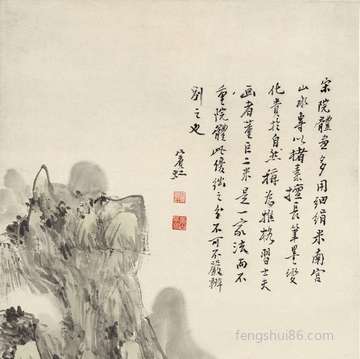 宋院體畫多用細絹米南宮
山水專以楮素擅長筆墨變
化貴於自然稱為雅格習士夫
画者董巨二米是一家法而不
重院體此優絀之分不可不嚴辨
别之也
fengshui86.com